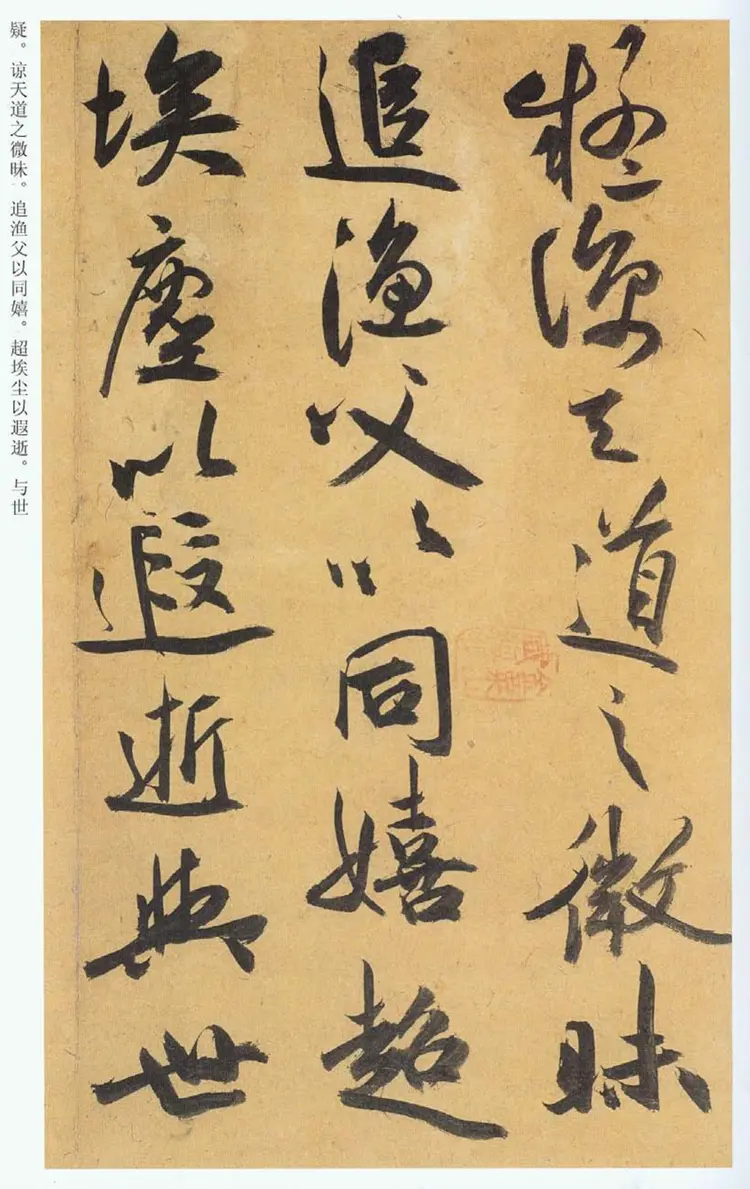 疑谅天道之微昧
追渔父以同嬉超
埃塵以遐逝與世
疑。谅天道之微昧。追渔父以同嬉。超埃尘以遐逝。与世